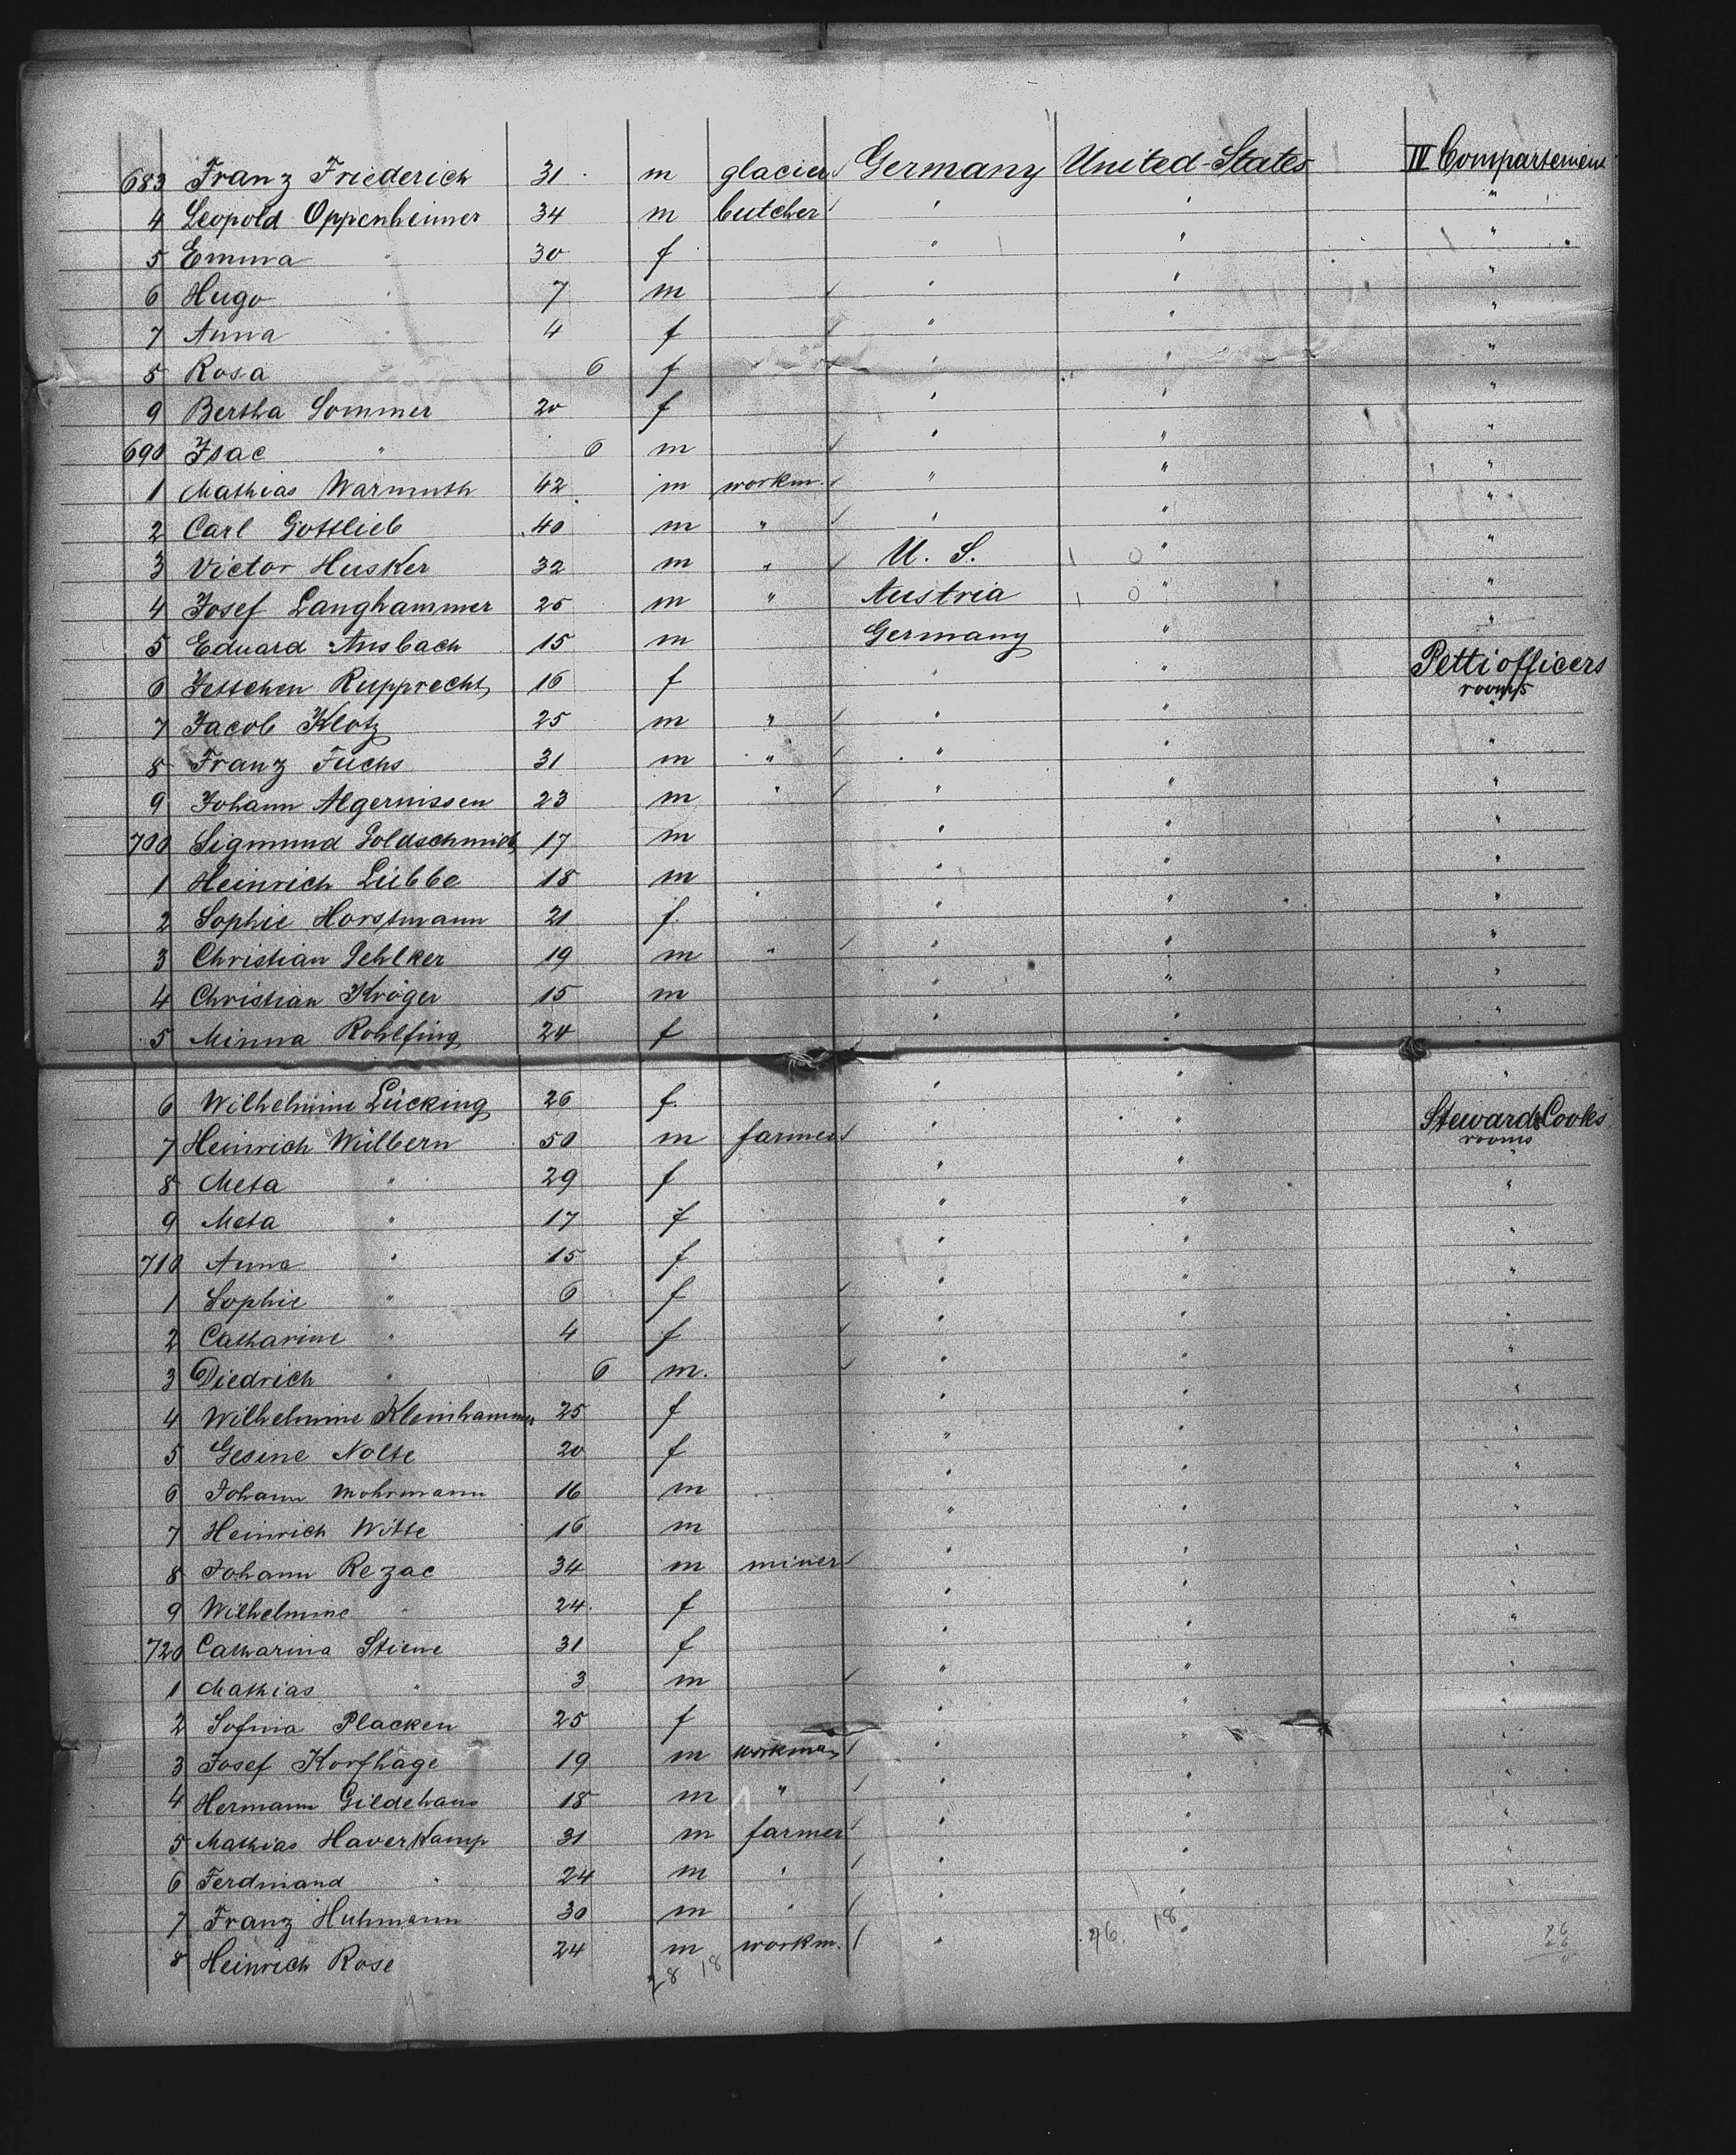 683 Franz Friederich 31 m glacier Germany United States IV Compartement
4 Leopold Oppenheimer 34 m butcher " " "
5 Emma " 30 f " " "
6 Hugo " 7 m " " "
7 Anna " 4 f " " "
8 Rosa 6 f " " "
9 Bertha Sommer 20 f " " "
690 Isac " 6 m " " "
1 Mathias Warmuth 42 m workm. " " "
2 Carl Gottlieb 40 m " " " "
3 Victor Husker 32 m " U. S. 1 0 " "
4 Josef Langhammer 25 m " Austria 1 0 " "
5 Eduard Ansbach 15 m Germany " "
6 Jettchen Rupprecht 16 f " " Petti officers rooms
7 Jacob Klotz 25 m " " " "
8 Franz Fuchs 31 m " " " "
9 Johann Algermissen 23 m " " " "
700 Sigmund Goldschmidt 17 m " " "
1 Heinrich Lübbe 18 m " " "
2 Sophie Horstmann 21 f. " " "
3 Christian Jehlker 19 m " " " "
4 Christian Kröger 15 m " " "
5 Minna Rohlfing 24 f " " "
6 Wilhelmine Lücking 26 f. " " "
7 Heinrich Wülbern 50 m farmer " " Stewards Cooks rooms
8 Meta " 29 f " " "
9 Meta " 17 f " " "
710 Anna " 15 f " " "
1 Sophie " 6 f " " "
2 Catharine " 4 f " " "
3 Diedrich " 6 m. " " "
4 Wilhelmine Kleinhammer 25 f " " "
5 Gesine Nolte 20 f " " "
6 Johann Mohrmann 16 m " " "
7 Heinrich Witte 16 m " " "
8 Johann Rezac 34 m miner " " "
9 Wilhelmine " 24 f " " "
720 Catharina Stiene 31 f " " "
1 Mathias " 3 m " " "
2 Sofina Placken 25 f " " "
3 Josef Korfhage 19 m workman " " "
4 Hermann Gildehaus 18 m " " " "
5 Mathias Haverkamp 31 m farmer " " "
6 Ferdinand " 24 m " " " "
7 Franz Huhmann 30 m " " " "
8 Heinrich Rose 24 m workm. " "
28 18 26. 18